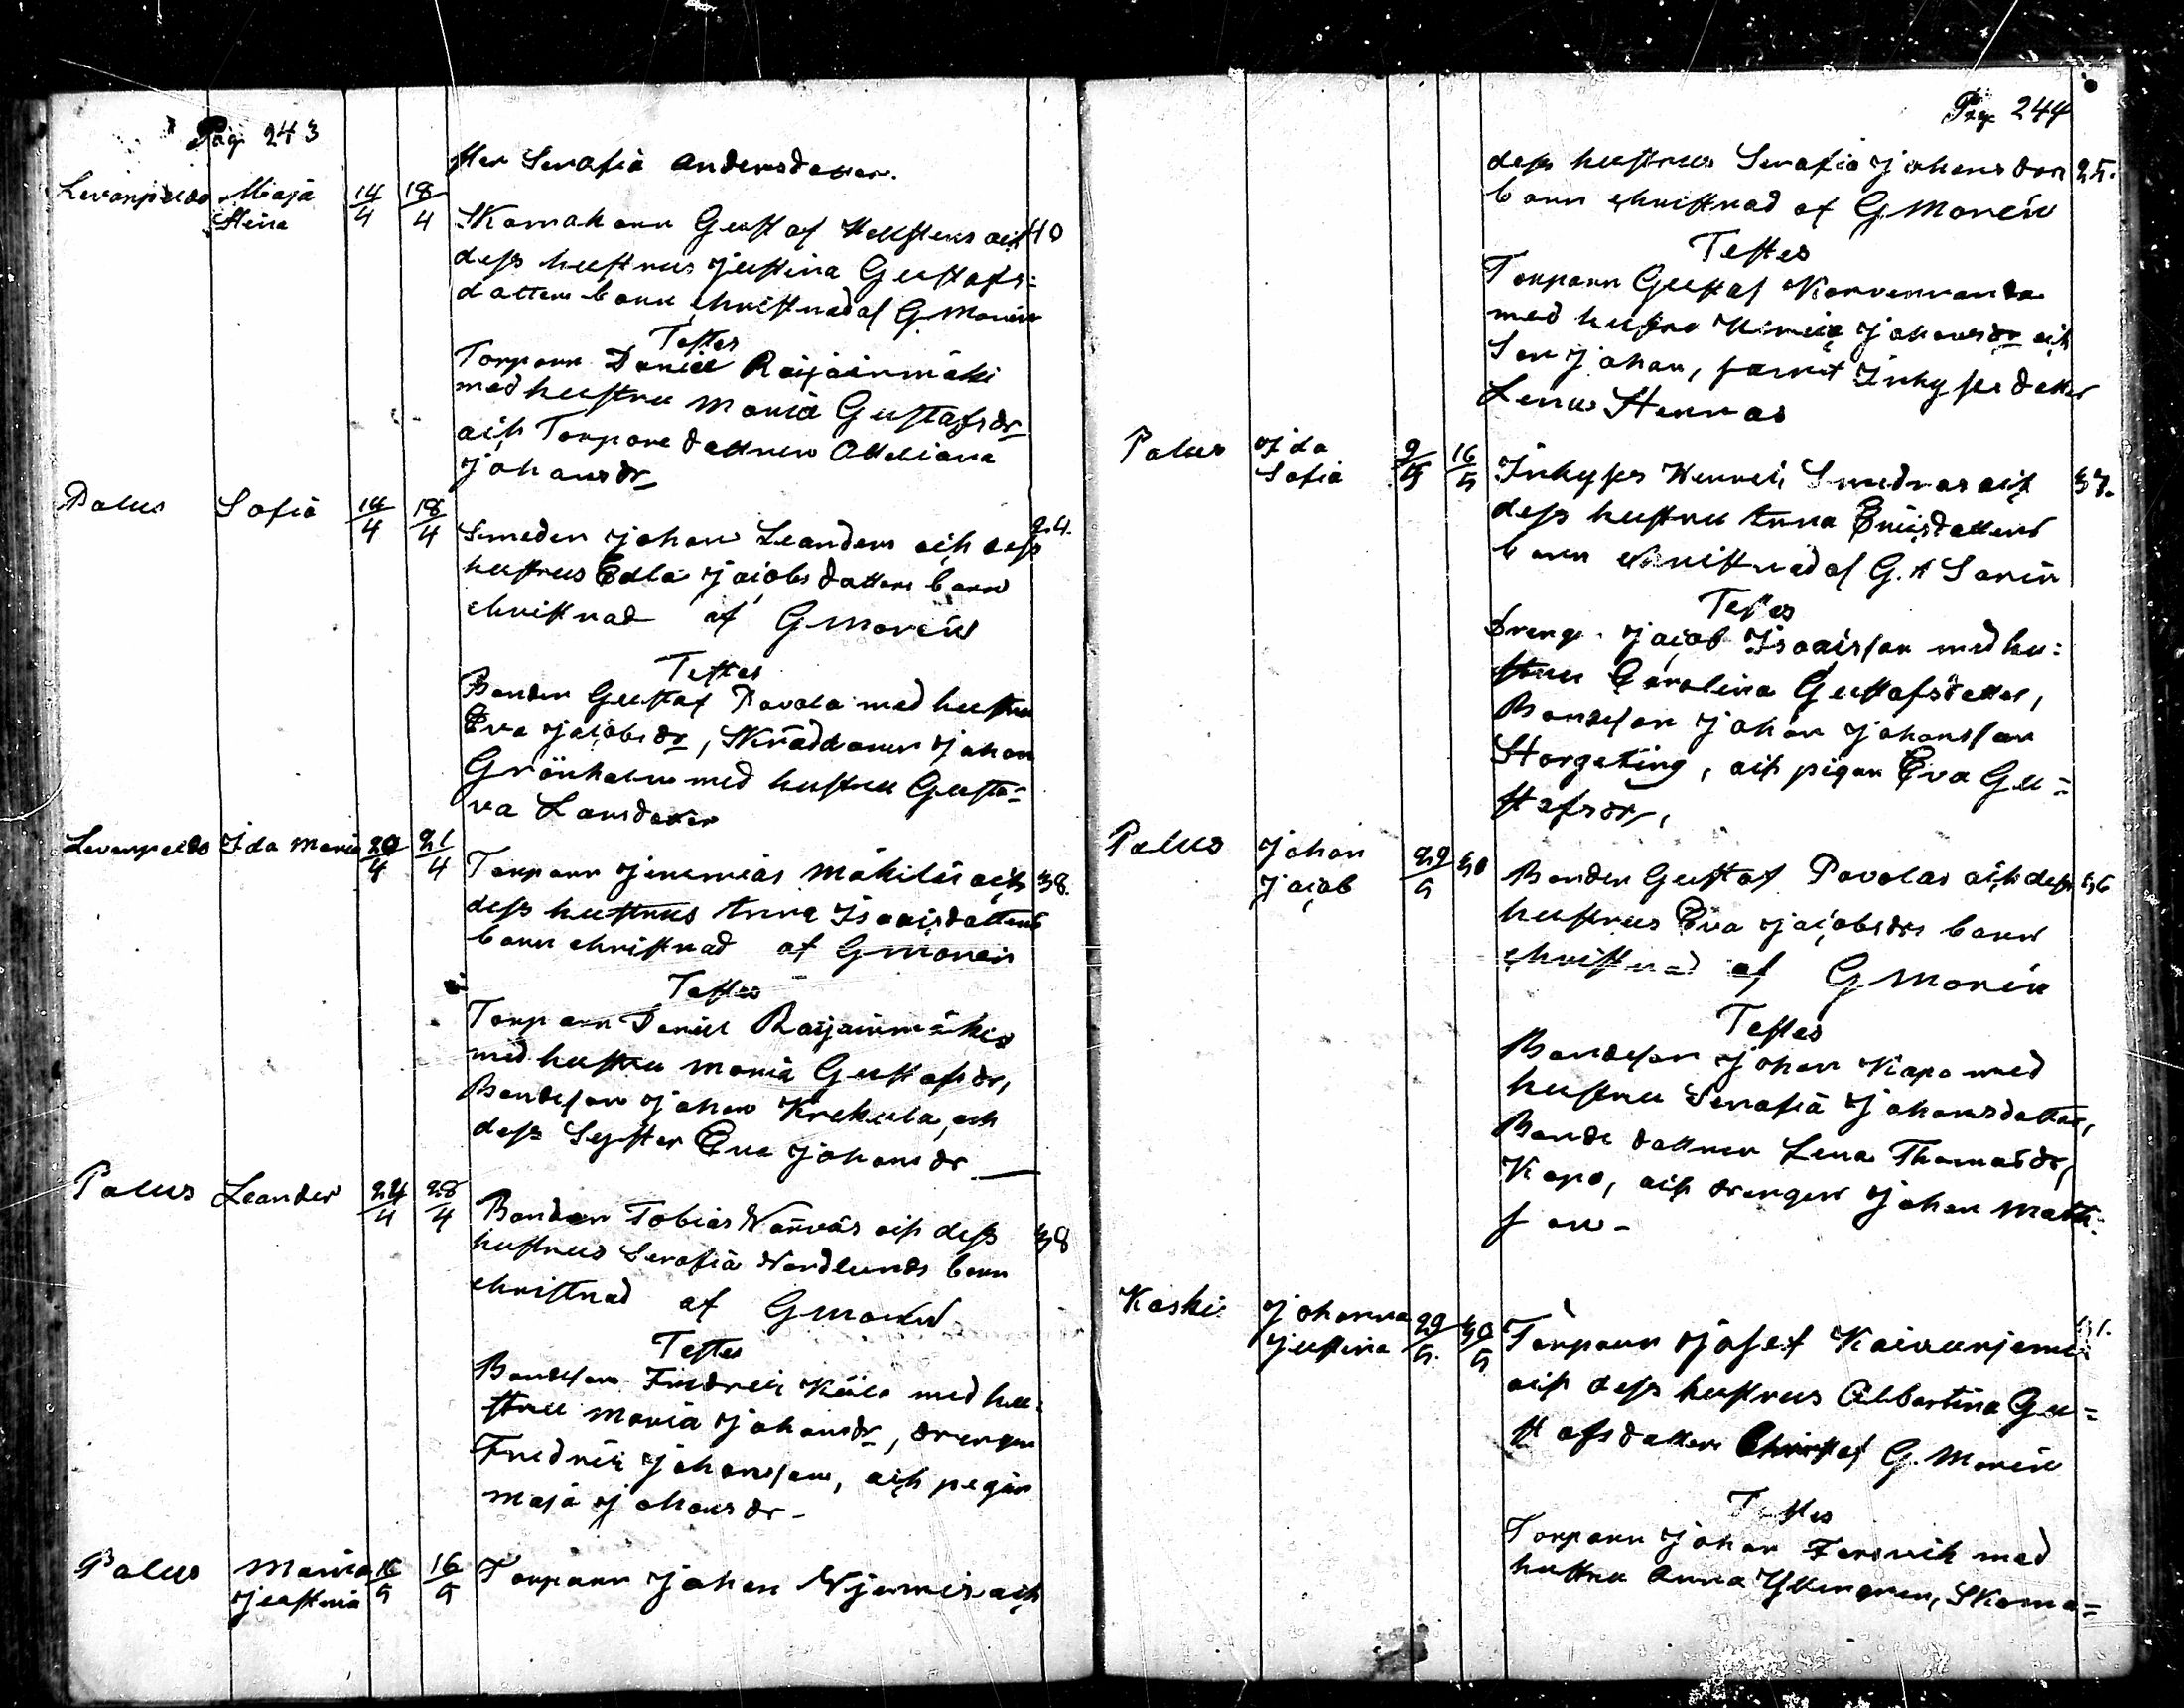 Pag. 243
tter Serafia Andersdotter.
Levanpeldo Maja 14/4 18/4
Stina
Skomakaren Gustaf Hellstens och 40
dess hustrus Justina Gustafs=
dotters barn christnad af G Morén
Testes
Torparn Daniel Raijainmäki
med hustru Maria Gustafsdr
och Torpare dottren Ottiliana
Johansdr
Palus Sofia 14/4 18/4
Smeden Johan Leanders och dess 24.
hustrus Edla Jacobsdotters barn
christnad af G Morén
Testes
Bonden Gustaf Pavola med hustru
Eva Jacobsdr, Skräddaren Johan
Grönholm med hustru Gusta=
va Larsdotter
Levanpeldo Ida Maria 20/4 21/4
Torparn Jeremias Mäkiläs och 38.
dess hustrus Anna Isacsdotters
barn christnad af G Morén
Testes
Torparn Daniel Raijainmäki
med hustru Maria Gustafsdr,
Bondeson Johan Krekula, och
dess Syster Eva Johansdr
Palus Leander 24/4 28/4
Bonden Tobias Narvas och dess 38
hustrus Serafia Nordlunds barn
christnad af G Morén
Testes
Bondeson Fredrik Käll med hu=
stru Maria Johansdr, drengen
Fredrik Johansson, och pigan
Maja Johansdr
Palus Maria 16/5 16/5
Justina
Torparn Johan Njemis och
Pag. 244
dess hustrus Serafia Johansdrs 25.
barn christnad af G Morén
Testes
Torparn Gustaf Korvenranda
med hustru Maria Johansdr och
Son Johan, samt Inhyses dotter
Lena Stenroos
Palus Ida 9/5 16/5
Sofia
Inhyses Henrik Smedras och 37.
dess hustru Anna Ericsdotters
barn christnad af G. A Sarin
Testes
Dreng. Jacob Isacsson med hu=
stru Carolina Gustafsdotter,
Bondeson Johan Johansson
Storgeting, och pigan Eva Gu=
stafsdr,
Palus Johan 29/5 30
Jacob
Bonden Gustaf Pavolas och dess 36
hustrus Eva Jacobsdrs barn
christnad af G Morén
Testes
Bondeson Johan Kapo med
hustru Serafia Johansdotter,
Bonde dottren Lena Thomasdr,
Kapo, och drengen Johan Matts
son
Koski Johanna 29/5 30/5
Justina
Torparn Josef Kaivurjemi 31.
och dess hustrus Albertina Gu=
stafsdotters Christ af G. Morén
Testes
Torparn Johan Forsvik med
hustru Anna Ytterngren, Skoma=